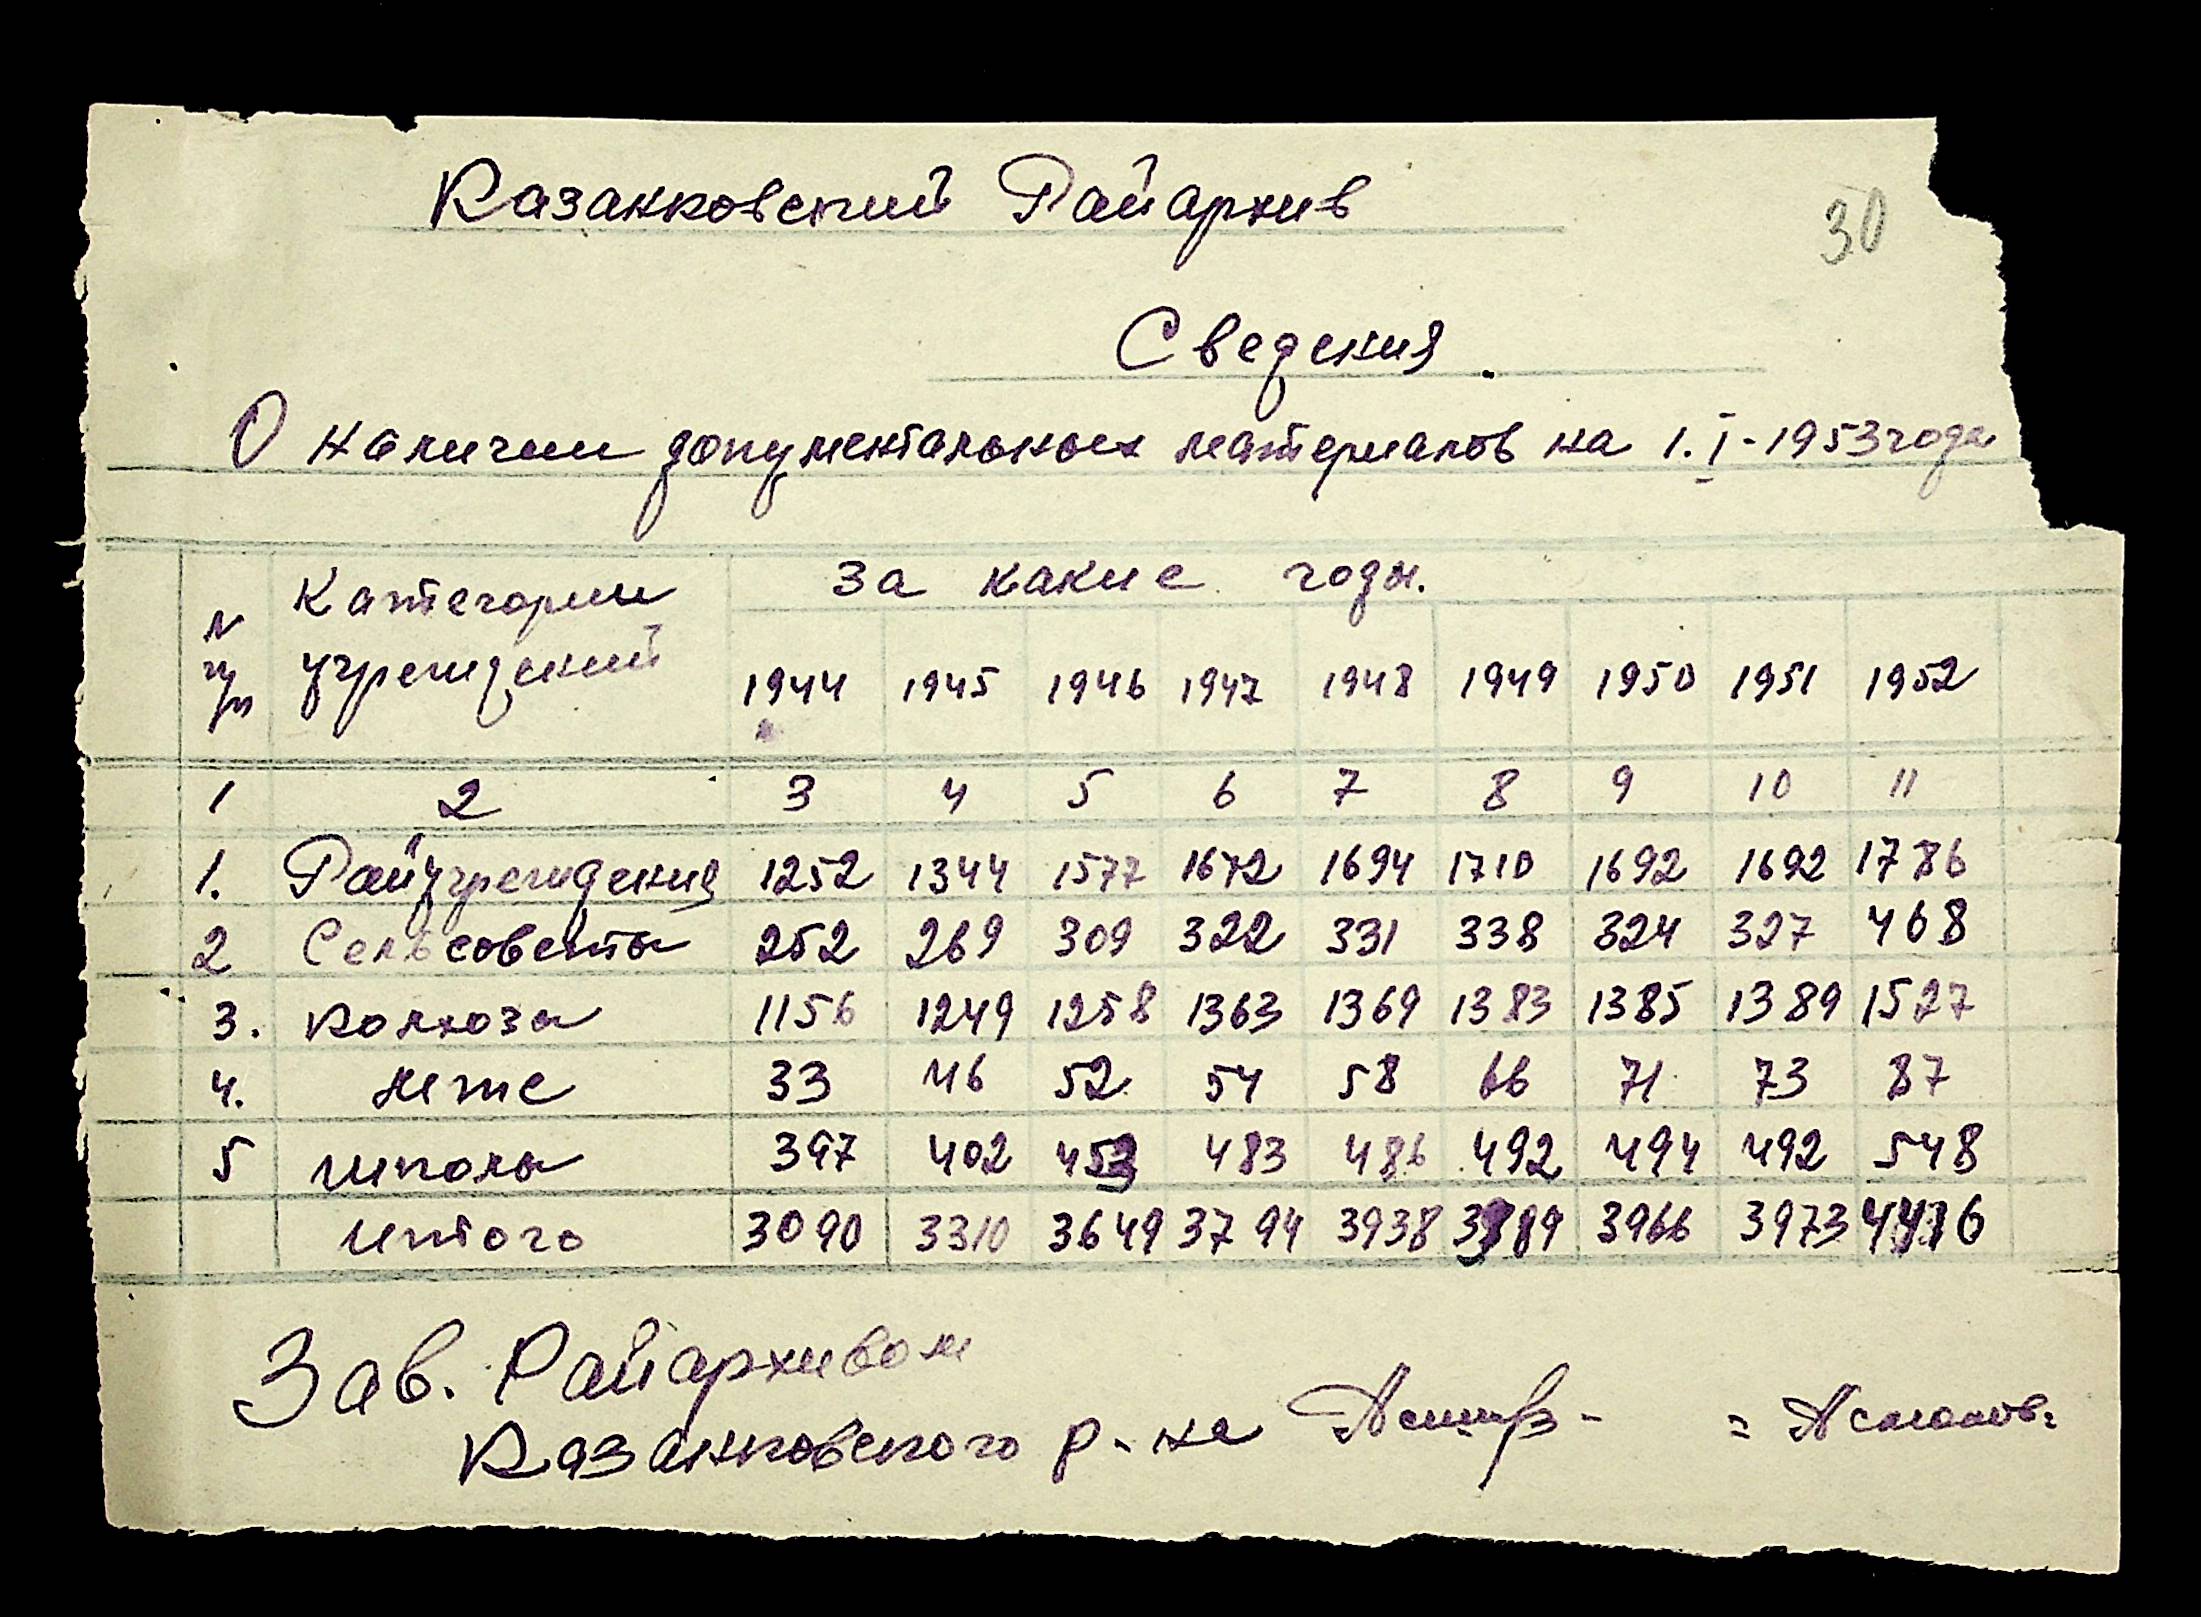 Казанковский Райархив
30
Сведения
О наличии документальных материалов на 1.I-1953 года
N п/п Категории учреждений За какие годы.
1944 1945 1946 1947 1948 1949 1950 1951 1952
1 2 3 4 5 6 7 8 9 10 11
1. Райучреждения 1252 1344 1577 1672 1694 1710 1692 1692 1786
2 Сельсоветы 252 269 309 322 331 338 324 327 468
3. Колхозы 1156 1249 1258 1363 1369 1383 1385 1389 1527
4. 33 46 52 54 58 66 71 73 87
5 Школы 397 402 453 483 486 492 494 492 548
Итого 3090 3310 3649 3794 3938 3989 3966 3973 4416
Зав. Райархивом
Казанковского р-на